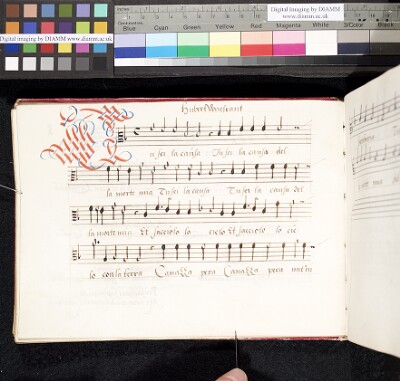 Digital imaging by DIAMM
www.diamm.ac.uk
Digital imaging by DIAMM
www.diamm.ac.uk
Blue Cyan Green Yellow Red Magenta White 3/Color Black
Hubert Waelrant
u sei la causa Tu sei la causa del
la morte mia Tu sei la causa Tu sei la causa del
la morte mia Et facciolo lo cielo Et facciolo lo cie
lo con la terra Canazza pera Canazza pera